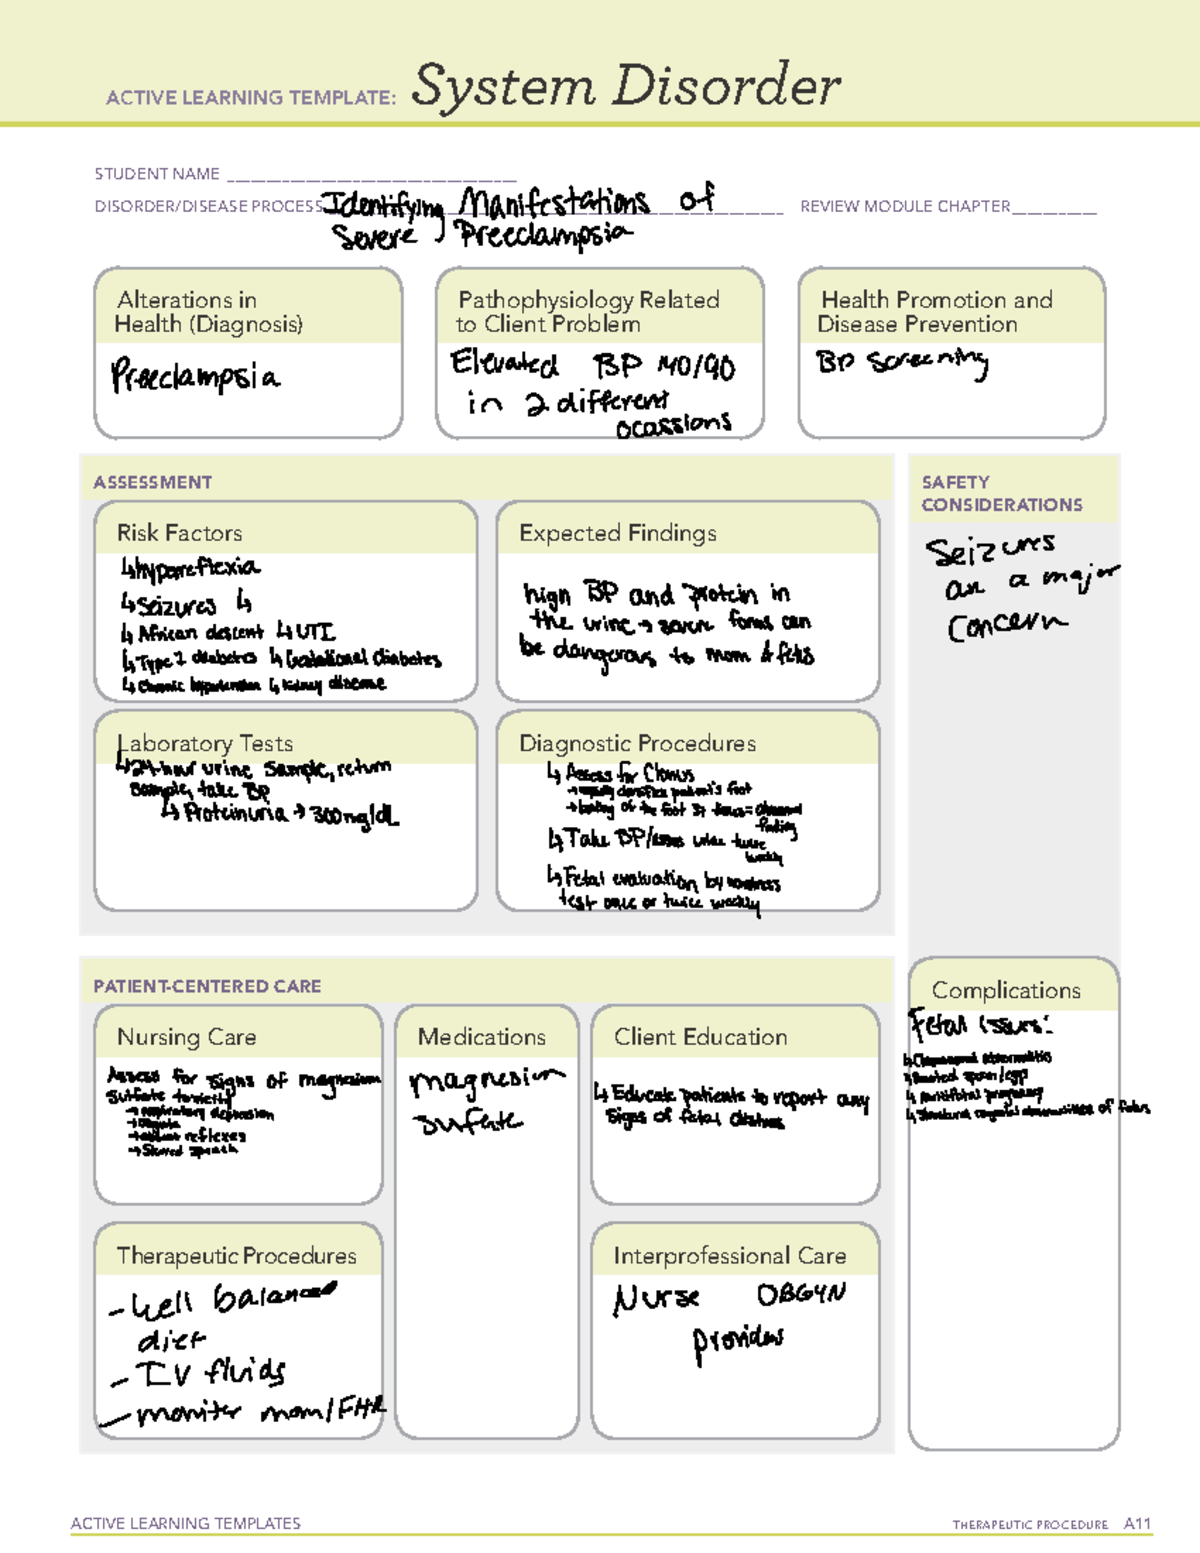 ACTIVE LEARNING TEMPLATE: System Disorder
STUDENT NAME
DISORDER/DISEASE PROCESS Identifying Manifestations of
Severe Preeclampsia
REVIEW MODULE CHAPTER
Alterations in
Health (Diagnosis)
Preeclampsia
Pathophysiology Related
to Client Problem
Elevated BP 140/90
in 2 different
ocassions
Health Promotion and
Disease Prevention
BP Screening
ASSESSMENT
Risk Factors
↳hyporeflexia
↳Seizures ↳
↳African descent ↳UTI
↳Type 1 diabetes ↳Gestational diabetes
↳Chronic hypertension ↳Kidney disease
Expected Findings
high BP and protein in
the urine → severe forms can
be dangerous to mom & fetus
SAFETY
CONSIDERATIONS
Seizures
are a major
concern
Laboratory Tests
↳24-hour urine Sample, return
sample, take BP
↳ Proteinuria → 300mg/dL
Diagnostic Procedures
↳ Assess for Clonus
→ dorsiflex patient's foot
→ of the foot 3+ times = abnormal
finding
↳Take BP/ urine twice
weekly
↳Fetal evaluation by nonstress
test once or twice weekly
PATIENT-CENTERED CARE
Nursing Care
Assess for signs of magnesium
Sulfate toxicity
→ respiratory depression
→ absent reflexes
→ Slurred speech
Medications
magnesium
sulfate
Client Education
↳ Educate patients to report any
signs of fetal distress
Complications
Fetal issues:
↳Chromosomal abnormalities
↳ sperm/egg
↳ multifetal pregnancy
↳Structural congenital abnormalities of fetus
Therapeutic Procedures
- Well balanced
diet
- IV fluids
- monitor mom/FHR
Interprofessional Care
Nurse OBGYN
providers
ACTIVE LEARNING TEMPLATES
THERAPEUTIC PROCEDURE A11